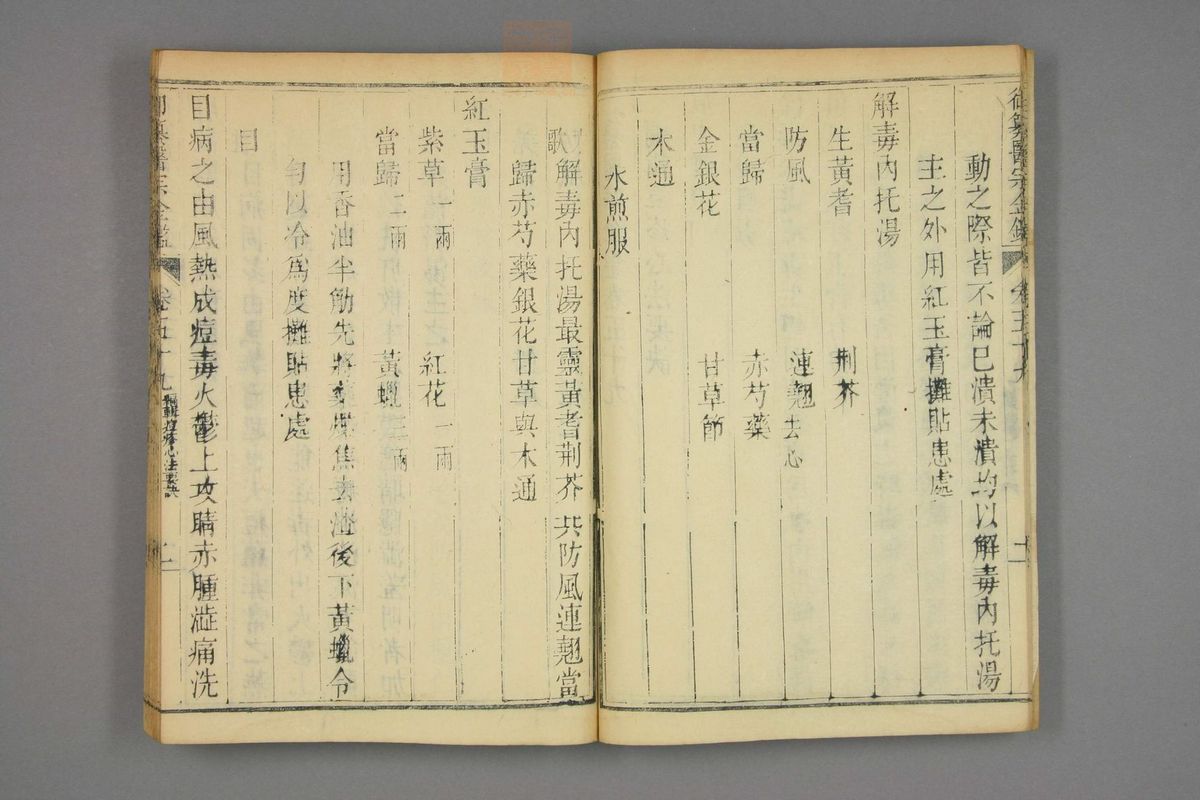 動之際皆不論已潰未潰均以解毒內托湯
主之外用紅玉膏攤貼患處
解毒內托湯
生黃耆 荆芥
防風 連翹去心
當歸 赤芍藥
金銀花 甘草節
木通
水煎服
歌解毒內托湯最靈黃耆荆芥共防風連翹當
歸赤芍藥銀花甘草與木通
紅玉膏
紫草一兩 紅花一兩
當歸二兩 黃蠟三兩
用香油半觔先將藥煠焦去渣後下黃蠟令
勻以冷為度攤貼患處
目
目病之由風熱成痘毒火鬱上攻睛赤腫澁痛洗
御纂醫宗金鑑 卷五十九 編輯痘疹心法要訣